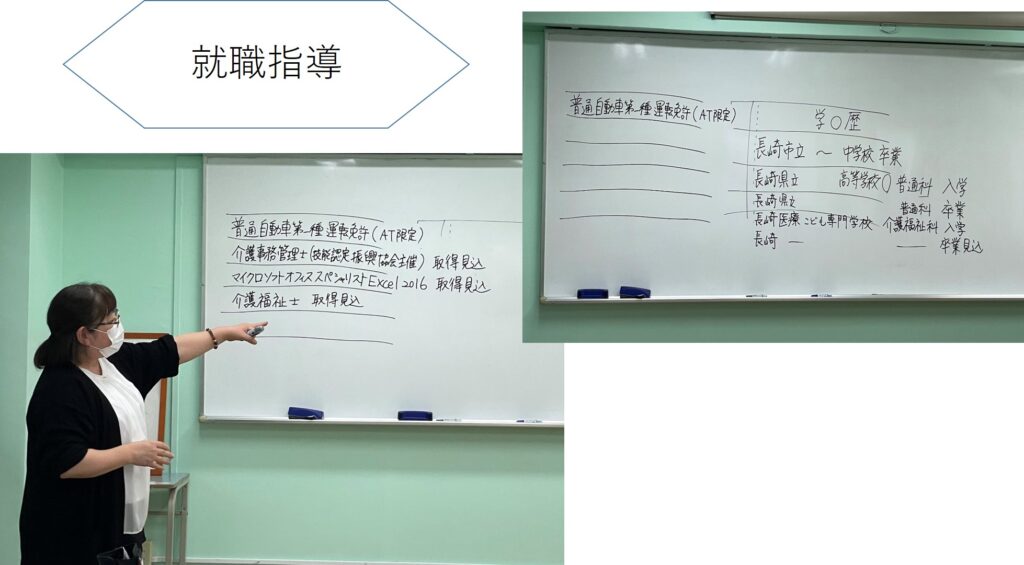 就職指導
普通自動車第一種運転免許(AT限定)
介護事務管理士(技能認定振興協会主催) 取得見込
マイクロソフトオフィススペシャリストExcel 2016 取得見込
介護福祉士 取得見込
普通自動車第一種運転免許(AT限定)
学〇歴
長崎市立 ～ 中学校 卒業
長崎県立 高等学校〇 普通科 入学
長崎県立 普通科 卒業
長崎医療こども専門学校 介護福祉科 入学
長崎 ― ― 卒業見込